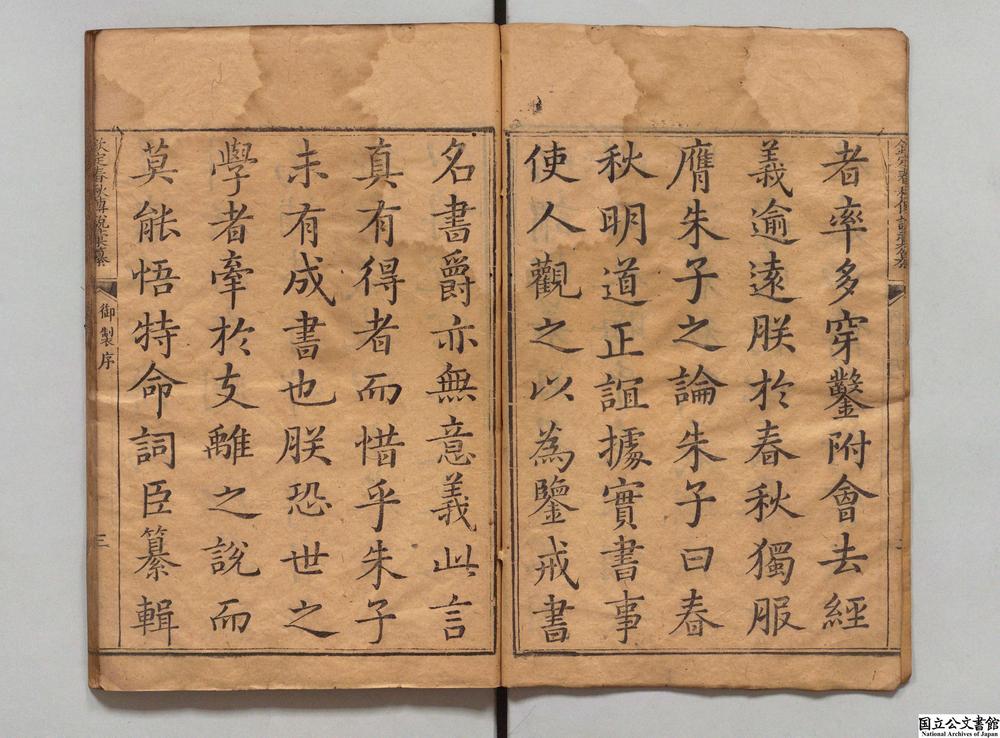 者率多穿鑿附會去經
義逾遠朕於春秋獨服
膺朱子之論朱子曰春
秋明道正誼據實書事
使人觀之以為鑒戒書
名書爵亦無意義此言
真有得者而惜乎朱子
未有成書也朕恐世之
學者牽於支離之說而
莫能悟特命詞臣纂輯
欽定春秋傳說彙纂
御製序
三
国立公文書館
National Archives of Japan